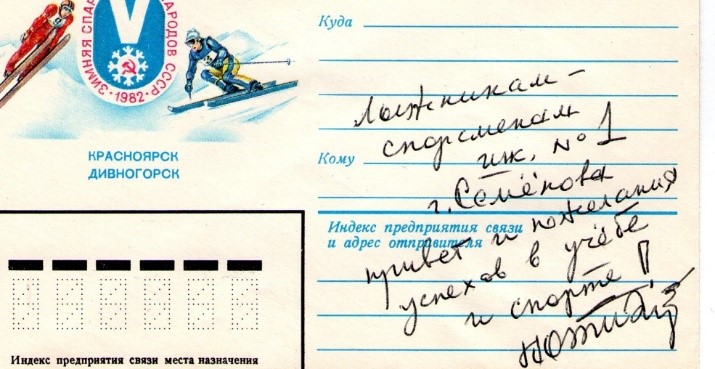 V
ЗИМНЯЯ СПАР НАРОДОВ СССР
• 1982 •
КРАСНОЯРСК
ДИВНОГОРСК
Куда
Кому
Индекс предприятия связи
и адрес отправителя
Лыжникам –
спорсменам
шк. № 1
г. Семёнова
привет и пожелания
успехов в учёбе
и спорте!
Индекс предприятия связи места назначения